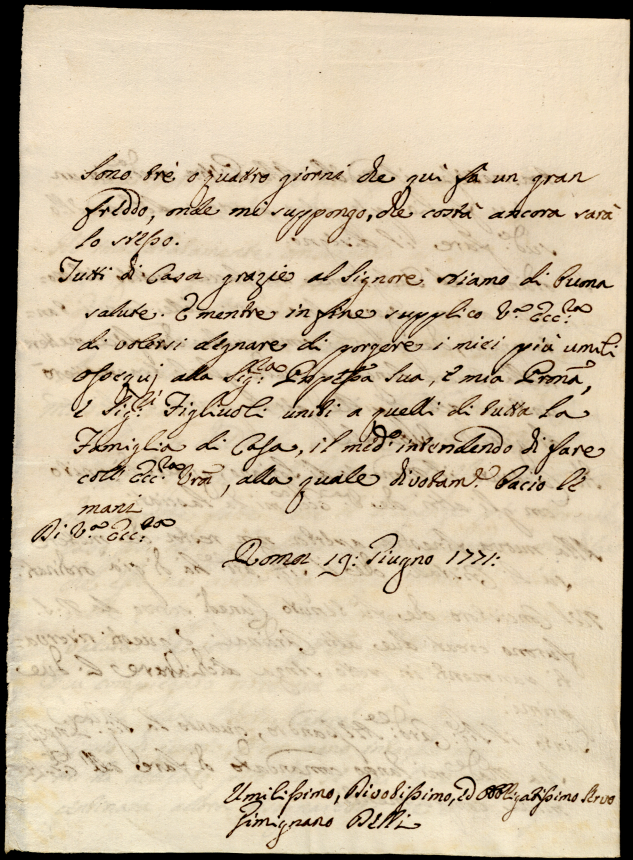 Sono trè o quattro giorni che quì fà un gran
freddo, onde mi suppongo, che costà ancora sarà
lo stesso.
Tutti di Casa grazie al Signore stiamo di buona
salute. E mentre in fine supplico V.ra Ecc.za
di volersi degnare di porgere i miei più umili
ossequj alla Sig.ra sua, e mia
e Sig.i Figliuoli uniti a quelli di tutta la
Famiglia di Casa, il med.o intendendo di fare
coll' Ecc.za Vrã, alla quale divotam.e bacio le
mani
Di V.ra Ecc.za
Roma 19: Giugno 1771:
Umilissimo, Divotissimo, ed Obbligatissimo Servo
Gimignano Belli